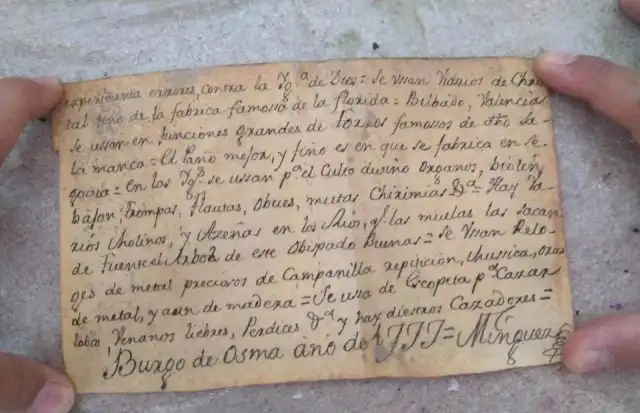 experimenta errores, contra la Yg.ª de Dios = Se vsan Vidrios de Chris
tal fino de la fabrica famossa de la florida = Bilbaño, Valencia
se ussan en funciones grandes de toros famossos de dho Sa-
lamanca = El Paño mejor, y fino es en que se fabrica en Se-
govia = En las Yg.s se ussan p.ª el Culto divino Organos, biolin,
bajon, trompas, flautas, Obues, muttas Chirimias &.ª = Hay va-
rios Molinos, y Azeñas en los Rios, y las muelas las sacan
de Fuente el Arbol de este Obispado Buenas = Se Vsan Relo-
ges de metal preciosos de Campanilla repiticion, Mussica, otros
de metal, y aun de madera = Se usa de Escopeta p.ª Cazar
lobos, Venaños liebres, Perdices &.ª y hay diestros Cazadores =
Burgo de Osma año de 1777 = Minguez